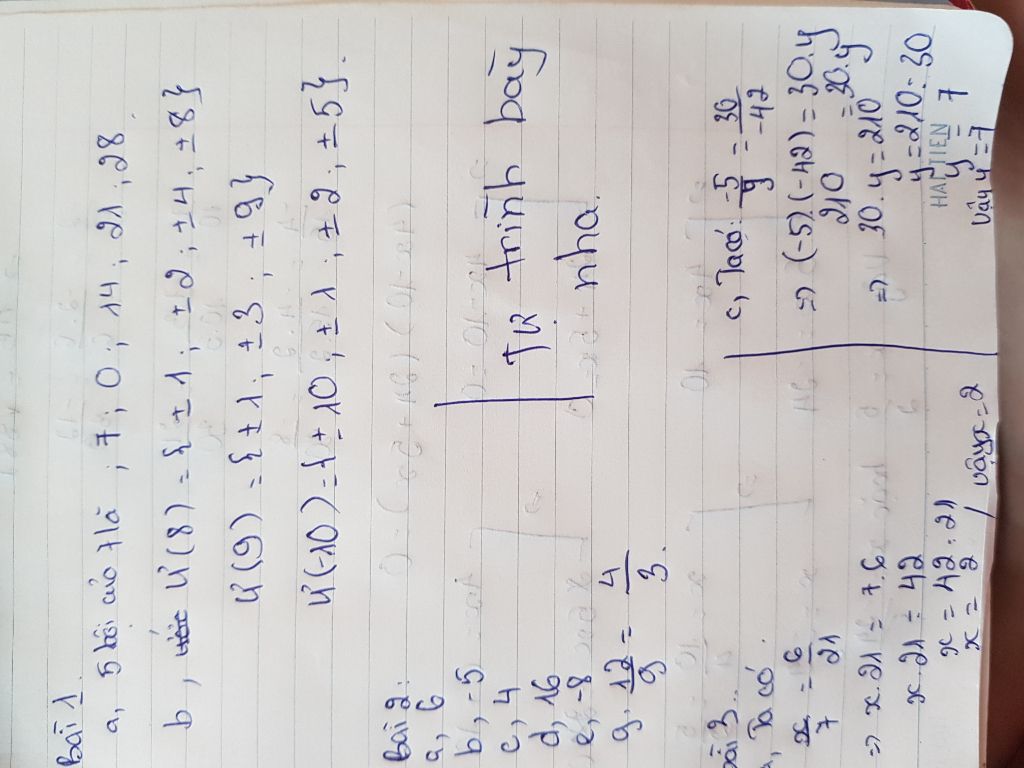 Bài 1.
a, 5 bội của 7 là ; 7 ; 0 ; 14 ; 21 ; 28.
b, Ư(8) = { ± 1 ; ± 2 ; ± 4 ; ± 8 }
Ư(9) = { ± 1 ; ± 3 ; ± 9 }
Ư(-10) = { ± 10 ; ± 1 ; ± 2 ; ± 5 }.
Bài 2:
a, 6
b, -5
c, 4
d, 16
e, -8
g, 12/9 = 4/3.
Tự trình bày
nha.
Bài 3.
a, Ta có.
x/7 = 6/21
=> x.21 = 7.6
x.21 = 42
x = 42:21
x = 2
Vậy x = 2
c, Ta có: -5/y = 30/-42
=> (-5).(-42) = 30.y
210 = 30.y
=> 30.y = 210
y = 210:30
y = 7
Vậy y = 7
HẢI TIẾN